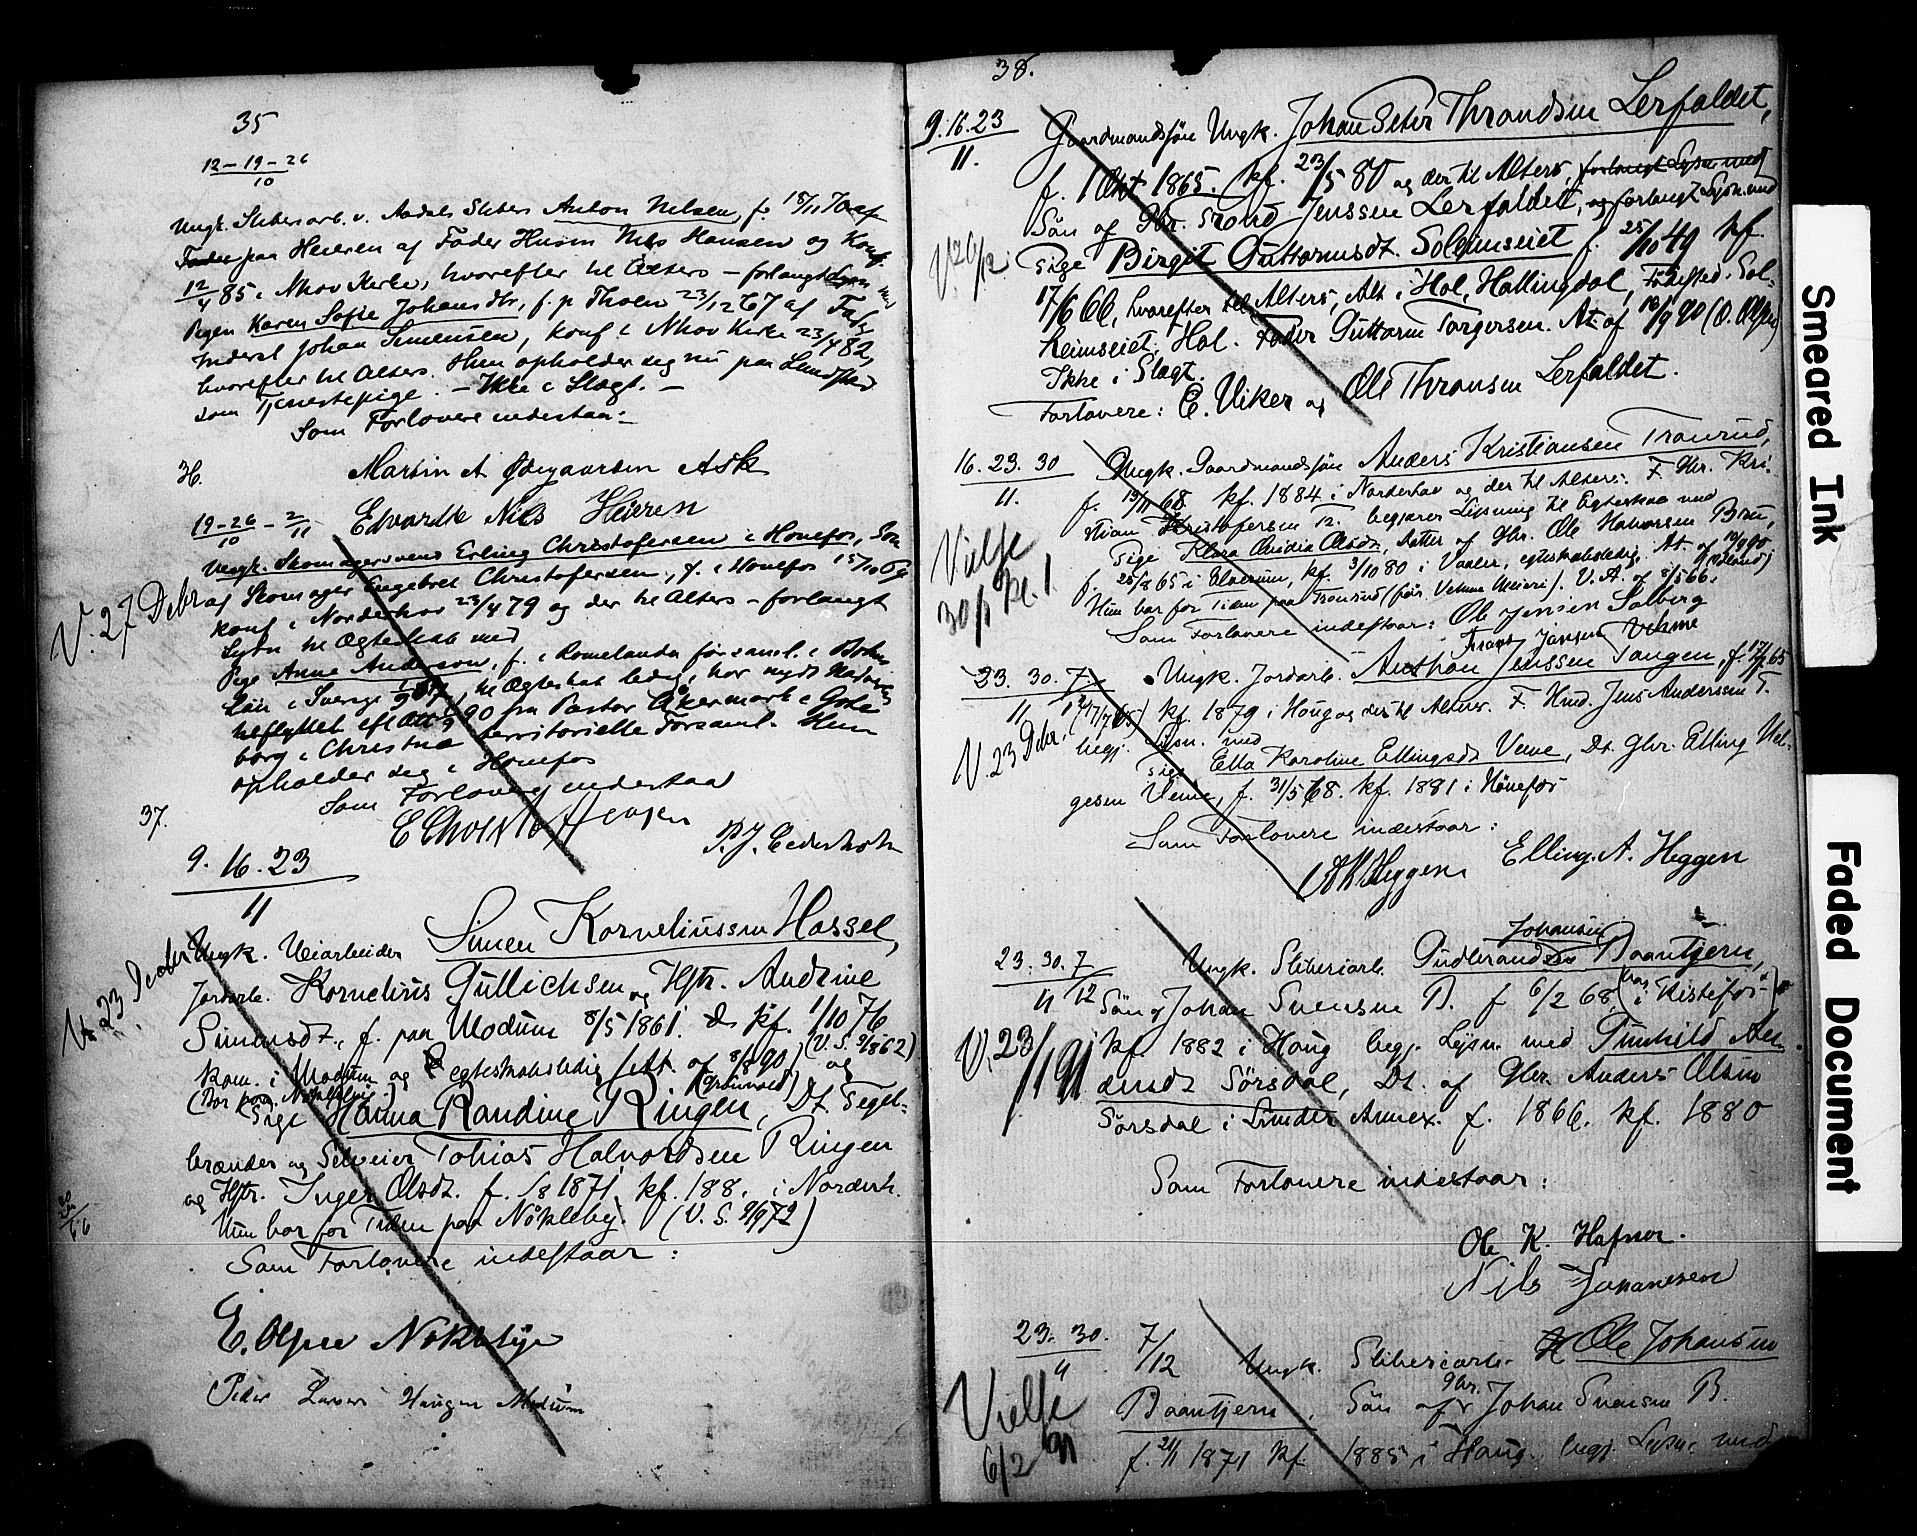 35
12-19-26
10
Ungk. Sliberiarb. v. Aadals Sliberi Anton Nilsen, f. 18/11 70 af
paa Heieren af Fader Husm Nils Hansen og Konf.
12/4 85 i Nkov Kirke, hvorefter til Alters – forlangt Lysn med
Pigen Karen Sofie Johansdtr, f. p. Thoen 23/12 67 af Fader
Inderst Johan Simensen, konf i Nkov Kirke 23/4 82,
hvorefter til Alters. Hun opholder sig nu paa Lundstad
som Tjenestepige. – Ikke i Slægt. –
Som Forlovere indestaa:
Martin A Ødegaarden Ask
Edvardk Nils Heieren
36.
19-26-2
10 11
Ungk. Skomagersvend Erling Christofersen i Hønefos, Søn
af Skomager Engebret Christofersen, f. i Hønefos 15/10 69
konf i Norderhov 23/4 79 og der til Alters – forlangt
Lysn til Ægteskab med
Pige Anna Anderson, f. i Romelanda församl. i Bohus
Län i Sverige, til Ægteskab ledig, har nydt Nadveren
tilflyttet eft Att 90 fra Pastor Åkermark i Gote
borg i Christnæ territorielle Forsaml. Hun
opholder sig i Hønefos
Som Forlovere indestaa
V. 27 Debr
P. J. Cederholm
37.
9. 16. 23
11
V. 23 Decbr
Ungk. Veiarbeider Simen Korneliussen Hassel,
Jordarb. Kornelius Gullichsen og Hstr. Andrine
Simensdt., f. paa Modum 8/5 1861. kf. 1/10 76
Kom. i Modum og egteskabsledig (Att. af 8/8 90) (V. S. 9/8 62) og
(Bor paa Nøkleby.) (Grønvold)
Pige Hanna Randine Ringen, Dt. Tegel-
brænder og Selveier Tobias Halvordsen Ringen
og Hstr. Inger Olsdt. f. 1871, kf. 188. i Norderh.
Hun bor for Tiden paa Nøkleby. (V. S. 9/9 72)
Som Forlovere indestaar:
E. Olsen Nøkleby
Peder Larsen Haugen Modum
38.
9. 16. 23
11.
V. 20/12
Gaardmandssøn Ungk. Johan Peter Throndsen Lerfaldet,
f. 1 Okt 1865. kf. 23/5 80 og der til Alters, forlangt Lysn. med
Søn af Gbr. Trond Jenssen Lerfaldet, og forlangt Lysn. med
Pige Birgit Guttormsdt. Soleimseiet f. 25/10 49 kf.
17/6 66, hvorefter til Alters, Alt i Hol, Hallingdal, Fødested. Sol-
heimseiet, Hol. Fader Guttorm Torgersen. At. af 18/9 90 (O. Olsen)
Ikke i Slægt.
Forlovere: E. Viker og Ole Thronsen Lerfaldet.
16. 23. 30
11.
Vielse
30/1 Kl. 1.
Ungk. Gaardmandssøn Anders Kristiansen Tronrud,
f. 19/11 68 kf. 1884 i Norderhov og der til Alters. F. Gbr. Kri-
stian Kristofersen T. begjærer Lysning til Egteskab med
Pige Klara Ovidia Olsdt, Datter af Gbr. Ole Halvorsen Bru,
f. 25/8 65 i Elverum, kf. 3/10 80 i Vaaler, egteskabsledig At. af 19/9 90
Hun bor for Tiden paa Tronrud (før Vehme Meieri). V. A. af 8/5 66.
Som Forlovere indestaar: Ole Jensen Solberg
Frants Jansen Vehme
23. 30. 7.
11 12
V. 23 Debr.
Ungk. Jordarb. Anthon Jenssen Tangen, f. 17/7 65
(17/7 65) kf. 1879 i Houg og der til Alters. F. Hmd. Jens Anderssen T.
begj. Lysn. med
Pige Ella Karoline Ellingsdt Veme, Dt. Gbr. Elling Hel-
gesen Veme, f. 31/5 68. kf. 1881 i Hønefos
Som Forlovere indestaar:
Elling. A. Heggen
23. 30. 7
11 12
V. 23/1 91
Ungk. Sliberiarb. Gudbrand Johansen Baantjern,
Søn af Johan Svensen B. f 6/2 68 (bor i Kistefos)
kf. 1882 i Houg begj. Lysn. med Gunhild An-
dersdt Sørsdal, Dt. af Gbr. Anders Olsen
Sørsdal i Lunder Annex. f. 1866. kf. 1880
Som Forlovere indestaar:
Ole K. Hafnor.
Nils Johanesen
23. 30. 7/12
11
Vielse
6/2 91
Ungk. Sliberiarb. Ole Johansen
Baantjern, Søn af Gbr. Johan Svensen B.
f. 21/1 1871 kf. 1885 i Houg begj. Lysn. med
Smeared Ink
Faded Document